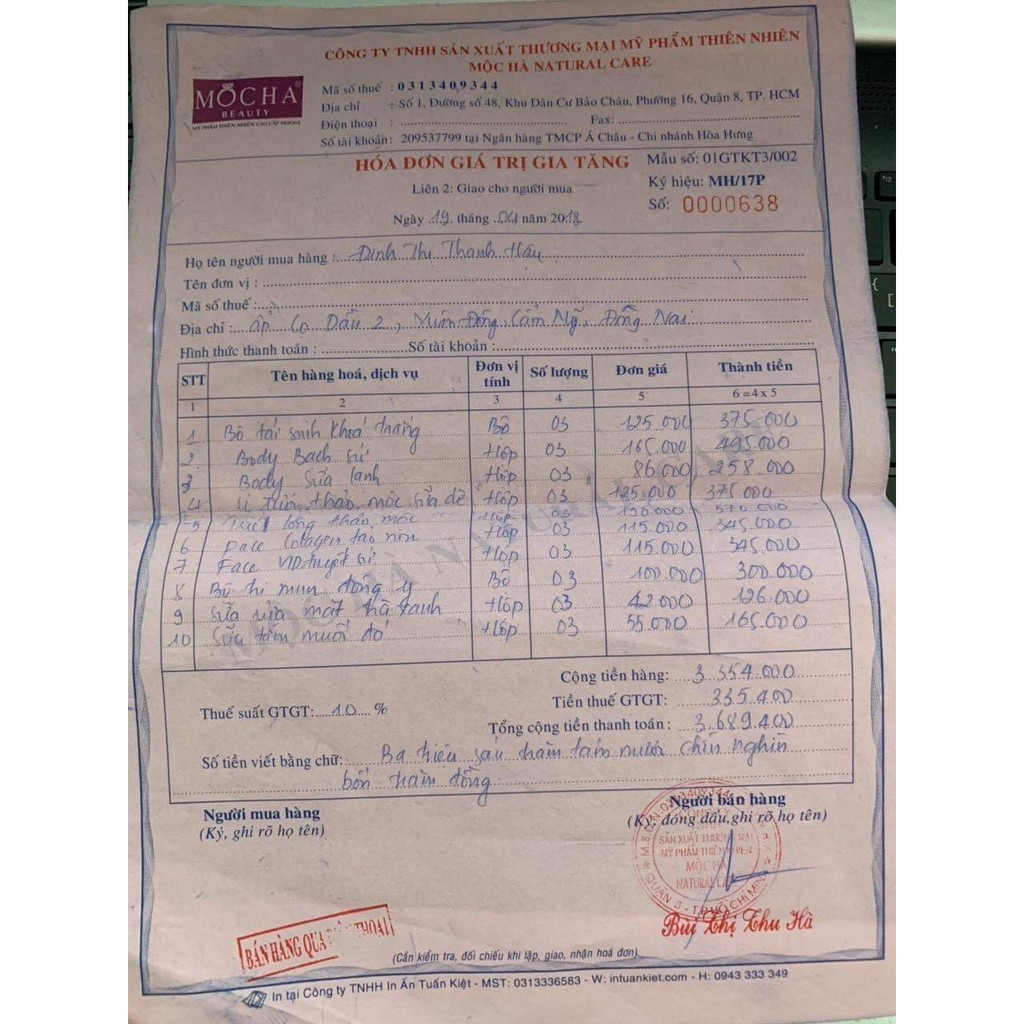 CÔNG TY TNHH SẢN XUẤT THƯƠNG MẠI MỸ PHẨM THIÊN NHIÊN
MỘC HÀ NATURAL CARE
MOCHA
BEAUTY
MỸ PHẨM THIÊN NHIÊN CAO CẤP MOCHA
Mã số thuế : 0313409344
Địa chỉ : Số 1, Đường số 48, Khu Dân Cư Bảo Châu, Phường 16, Quận 8, TP. HCM
Điện thoại : Fax:
Số tài khoản: 209537799 tại Ngân hàng TMCP Á Châu - Chi nhánh Hòa Hưng
HÓA ĐƠN GIÁ TRỊ GIA TĂNG
Mẫu số: 01GTKT3/002
Liên 2: Giao cho người mua
Ký hiệu: MH/17P
Số: 0000638
Ngày 19 tháng 04 năm 2018
Họ tên người mua hàng : Đinh Thị Thanh Hậu
Tên đơn vị :
Mã số thuế :
Địa chỉ : ấp Cọ Dầu 2, Xuân Đông, Cẩm Mỹ, Đồng Nai
Hình thức thanh toán : Số tài khoản :
STT Tên hàng hoá, dịch vụ Đơn vị tính Số lượng Đơn giá Thành tiền
1 2 3 4 5 6 = 4 x 5
1 Bộ tái sinh khoá trắng Bộ 03 125.000 375.000
2 Body Bạch sứ Hộp 03 165.000 495.000
3 Body sữa lạnh Hộp 03 86.000 258.000
4 thảo mộc sữa dê Hộp 03 125.000 375.000
5 Triệt lông thảo mộc Hộp 03 190.000 570.000
6 Face Colagen tảo non 03 115.000 345.000
7 Face VIP tuyết sứ Hộp 03 115.000 345.000
8 Bộ trị mụn đông y Bộ 03 100.000 300.000
9 Sữa rửa mặt trà xanh Hộp 03 42.000 126.000
10 Sữa tắm muối đỏ Hộp 03 55.000 165.000
Cộng tiền hàng: 3.354.000
Thuế suất GTGT: 10 % Tiền thuế GTGT: 335.400
Tổng cộng tiền thanh toán : 3.689.400
Số tiền viết bằng chữ: Ba triệu sáu trăm tám mươi chín nghìn
bốn trăm đồng
Người mua hàng
(Ký, ghi rõ họ tên)
Người bán hàng
(Ký, đóng dấu, ghi rõ họ tên)
SẢN XUẤT THƯƠNG MẠI
MỸ PHẨM THIÊN NHIÊN
MỘC HÀ
NATURAL CARE
QUẬN 8 - T.P HỒ CHÍ MINH
Bùi Thị Thu Hà
BÁN HÀNG QUA ĐIỆN THOẠI
(Cần kiểm tra, đối chiếu khi lập, giao, nhận hoá đơn)
In tại Công ty TNHH In Ấn Tuấn Kiệt - MST: 0313336583 - W: intuankiet.com - H: 0943 333 349